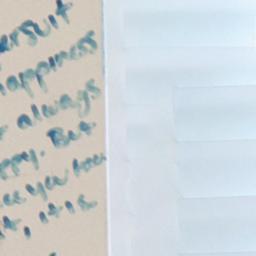 ersuit
happiness
always
ppy. But
see you
it, it is